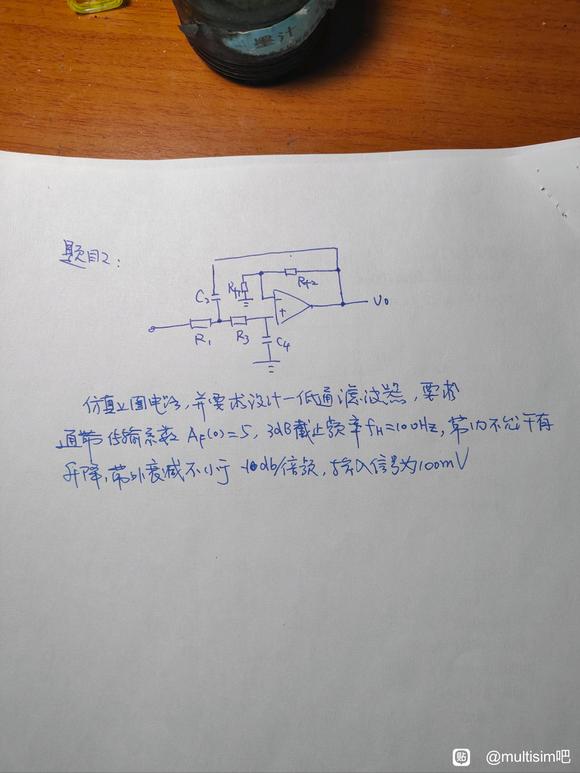 墨汁
题目2:
C2
Rf1
Rf2
R1
R3
C4
-
+
Vo
仿真上图电路,并要求设计一低通滤波器,要求
通带传输系数 AF(0)=5, 3dB截止频率 fH=100Hz, 带内不允许有
升降,带外衰减不小于 -10db/倍频,输入信号为100mV
贴 @multisim吧